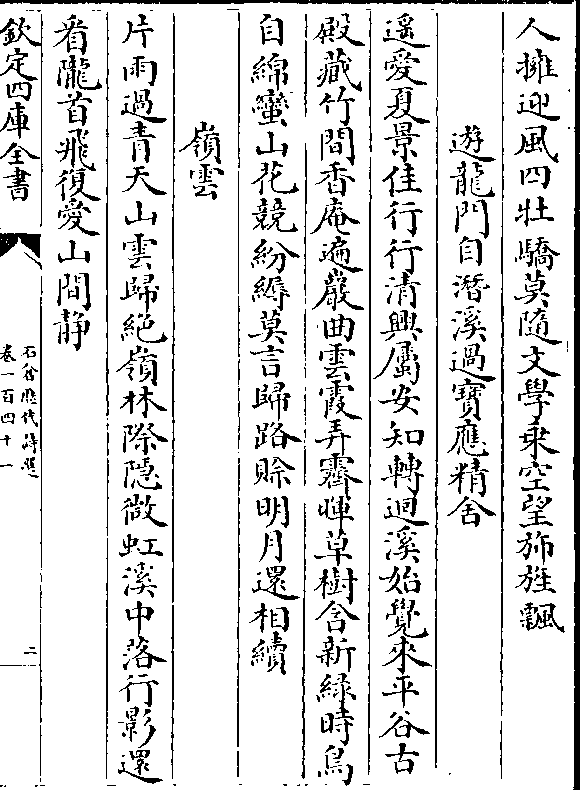 人擁迎風四牡驕莫隨文學乗空望斾旌飄
遊龍門自潛溪過寳應精舎
遥愛夏景佳行行清興屬安知轉迴溪始覺來平谷古
殿藏竹間香庵遍巖曲雲霞弄霽暉草樹含新綠時鳥
自綿蠻山花競紛縟莫言歸路賒明月還相續
嶺雲
片雨過青天山雲歸絶嶺林際隱微虹溪中落行影還
看隴首飛復愛山間静
欽定四庫全書
石倉歴代詩選
卷一百四十一
二